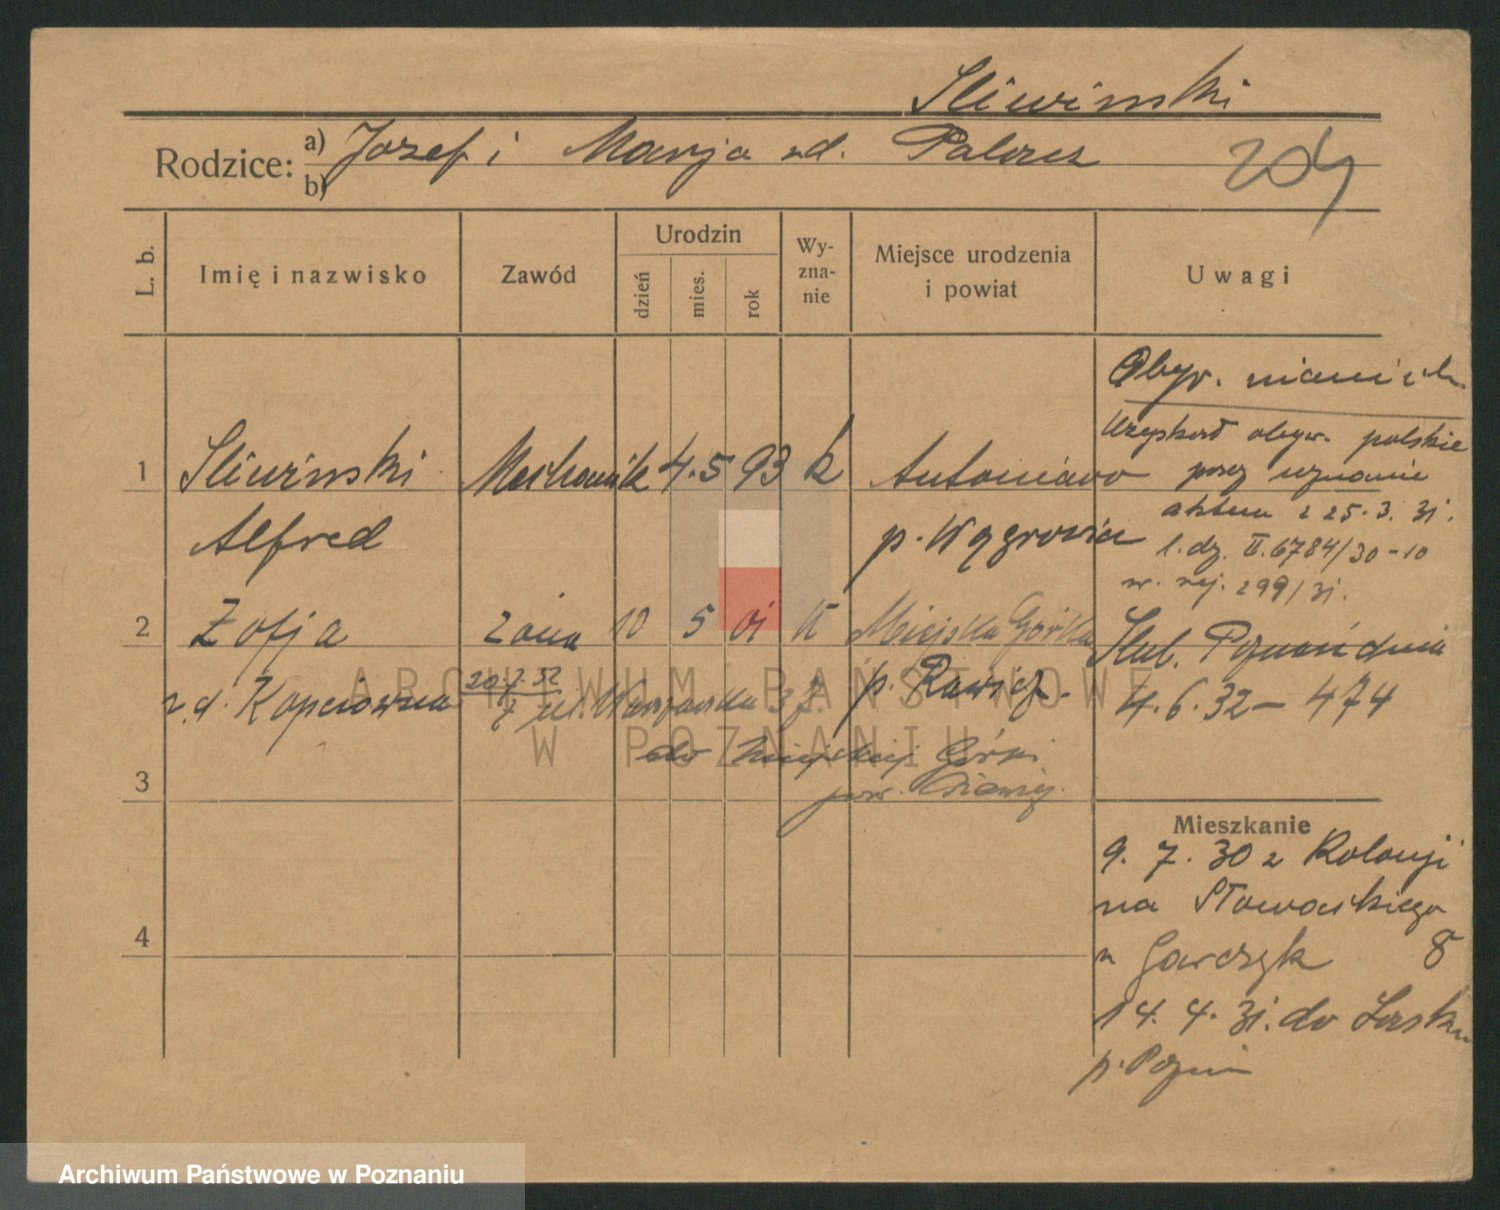 Sliwinski
Rodzice: a) Jozef i Marja zd. Palacz
b)
204
L. b.
Imię i nazwisko
Zawód
Urodzin
dzień
mies.
rok
Wy-
zna-
nie
Miejsce urodzenia
i powiat
Uwagi
Obyw. niemieck.
Uzyskał obyw. polskie
przez uznanie
aktem z 25.3.31.
l.dz. II.6784/30-10
nr. rej. 299/31.
1 Sliwinski Mechanik 4. 5 93 k Antoniewo
Alfred p. Wągrowiec
2 Zofja żona 10 5 01 k Miejska Górka
z.d. Kopciówna p. Rawicz.
20.7.32
ul. Warszawska 37.
do Miejskiej Górki
pow. Rawicz.
Ślub. Poznań dnia
4.6.32 - 474
3
4
Mieszkanie
9. 7. 30 z Kolonji
na Słowackiego
u Garczyk 8
14. 4. 31. do
p. Pozn
ARCHIWUM PAŃSTWOWE
W POZNANIU
Archiwum Państwowe w Poznaniu